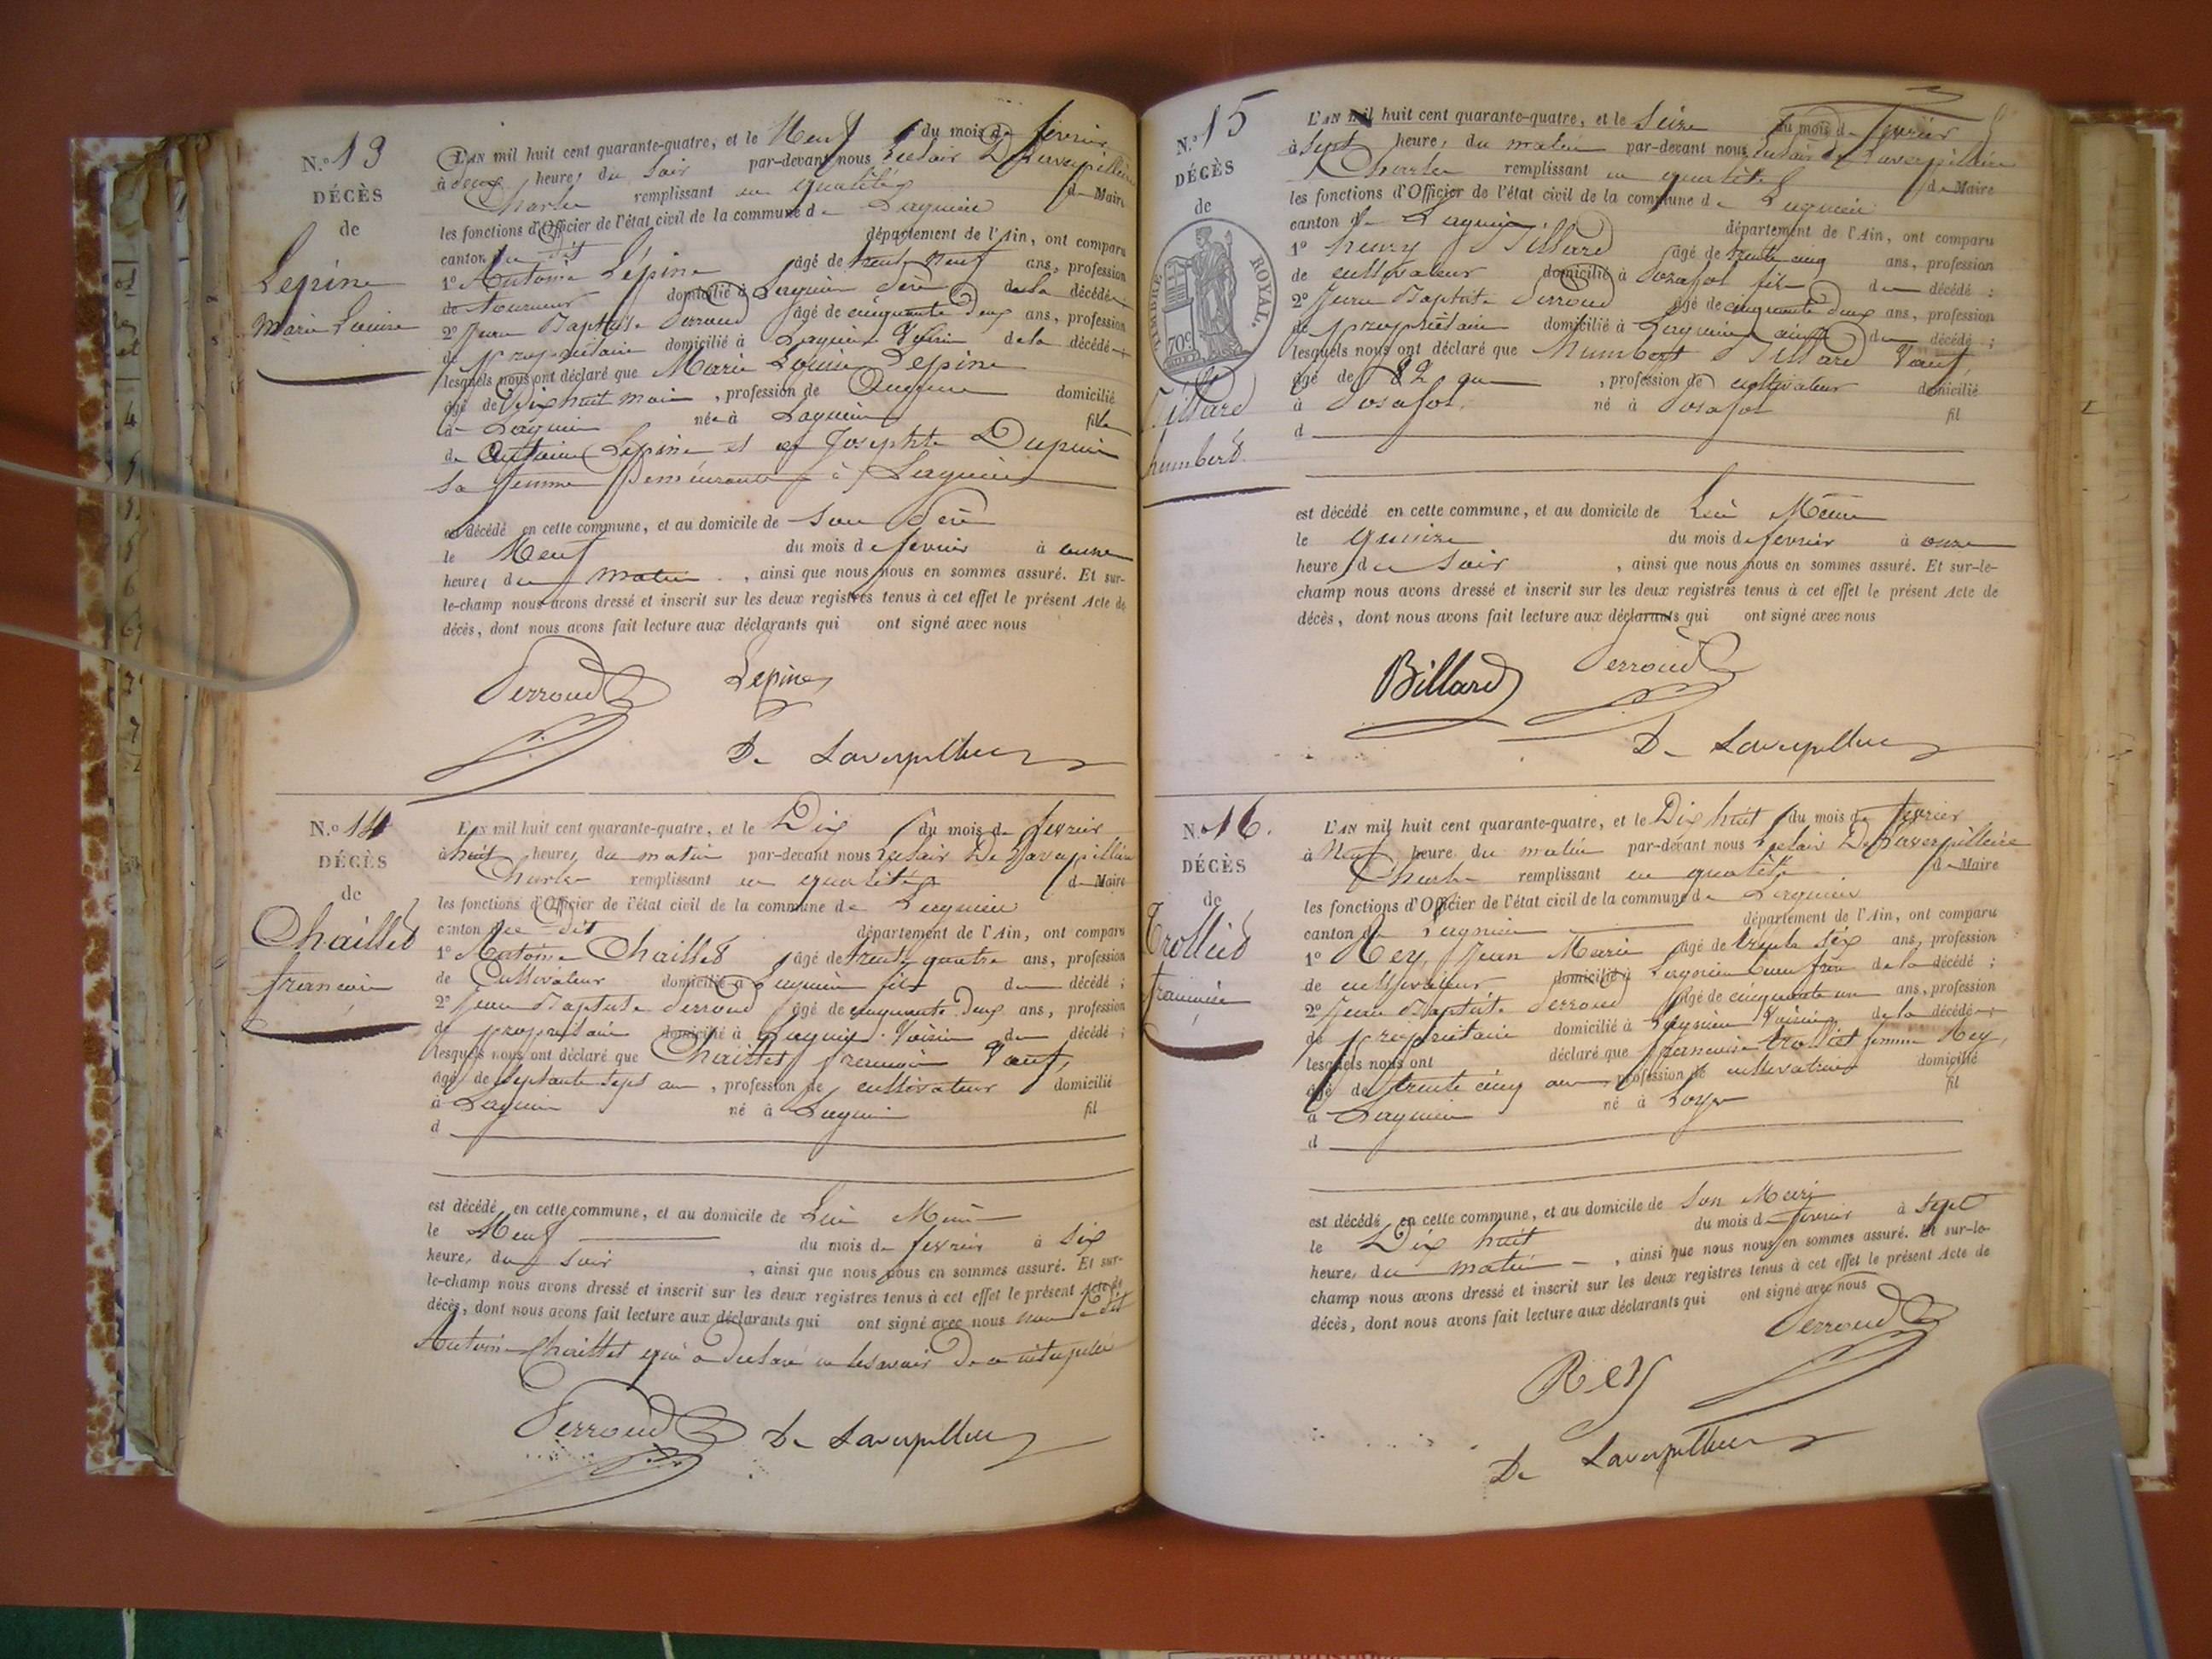 N.º 13
DÉCÈS
de
Lepine
Marie Louise
L'AN mil huit cent quarante-quatre, et le Neuf du mois de fevrier
à deux heures du soir par-devant nous
Charles remplissant en qualité de Maire
les fonctions d'Officier de l'état civil de la commune de Lagnieu
canton du dit département de l'Ain, ont comparu
1º Antoine Lépine âgé de trente neuf ans, profession
de tourneur domicilié à Lagnieu père de la décédée
2º Jean Baptiste Perroud âgé de cinquante deux ans, profession
de propriétaire domicilié à Lagnieu Voisin de la décédée
lesquels nous ont déclaré que Marie Louise Lepine
âgé de Dix huit mois, profession de Aucune domicilié
à Lagnieu née à Lagnieu fille
de Antoine Lepine et de Josephte Dupuis
sa femme Demeurants à Lagnieu
est décédé en cette commune, et au domicile de son père
le Neuf du mois de fevrier à onze
heures du matin, ainsi que nous nous en sommes assuré. Et sur-
le-champ nous avons dressé et inscrit sur les deux registres tenus à cet effet le présent Acte de
décès, dont nous avons fait lecture aux déclarants qui ont signé avec nous
Perroud Lepine
De Laverpilliere
N.º 14
DÉCÈS
de
Chaillet
francois
L'AN mil huit cent quarante-quatre, et le Dix du mois de fevrier
à huit heures du matin par-devant nous De Laverpilliere
Charles remplissant en qualité de Maire
les fonctions d'Officier de l'état civil de la commune de Lagnieu
canton du dit département de l'Ain, ont comparu
1º Antoine Chaillet âgé de trente quatre ans, profession
de Cultivateur domicilié à Lagnieu fils du décédé ;
2º Jean Baptiste Perroud âgé de cinquante deux ans, profession
de propriétaire domicilié à Lagnieu Voisin du décédé ;
lesquels nous ont déclaré que Chaillet francois Vauf,
âgé de septante sept ans, profession de cultivateur domicilié
à Lagnieu né à Lagnieu fil
d
est décédé en cette commune, et au domicile de Lui Même
le Neuf du mois de fevrier à six
heures du soir, ainsi que nous nous en sommes assuré. Et sur-
le-champ nous avons dressé et inscrit sur les deux registres tenus à cet effet le présent Acte de
décès, dont nous avons fait lecture aux déclarants qui ont signé avec nous
Antoine Chaillet qui a declaré ne le savoir De ce
Perroud De Laverpilliere
N.º 15
DÉCÈS
de
TIMBRE ROYAL.
70c
Billard
humbert
L'AN mil huit cent quarante-quatre, et le Seize du mois de fevrier
à sept heures du matin par-devant nous
Charles remplissant en qualité de Maire
les fonctions d'Officier de l'état civil de la commune de Lagnieu
canton de Lagnieu département de l'Ain, ont comparu
1º henry Billard âgé de trente cinq ans, profession
de cultivateur domicilié à Posafol fils du décédé ;
2º Jean Baptiste Perroud âgé de cinquante deux ans, profession
de propriétaire domicilié à Lagnieu du décédé ;
lesquels nous ont déclaré que humbert Billard Vauf,
âgé de 82 ans, profession de cultivateur domicilié
à Posafol né à Posafol fil
d
est décédé en cette commune, et au domicile de Lui Même
le quinze du mois de fevrier à onze
heure du soir, ainsi que nous nous en sommes assuré. Et sur-le-
champ nous avons dressé et inscrit sur les deux registres tenus à cet effet le présent Acte de
décès, dont nous avons fait lecture aux déclarants qui ont signé avec nous
Billard Perroud
De Laverpilliere
N.º 16.
DÉCÈS
de
Trolliet
francoise
L'AN mil huit cent quarante-quatre, et le Dix huit du mois de fevrier
à Neuf heure du matin par-devant nous De Laverpilliere
Charles remplissant en qualité de Maire
les fonctions d'Officier de l'état civil de la commune de Lagnieu
canton de Lagnieu département de l'Ain, ont comparu
1º Rey Jean Marie âgé de trente six ans, profession
de cultivateur domicilié à Lagnieu beau frère de la décédé ;
2º Jean Baptiste Perroud âgé de cinquante un ans, profession
de propriétaire domicilié à Lagnieu Voisin de la décédée
lesquels nous ont déclaré que francoise trolliet femme Rey,
âgé de trente cinq ans, profession de cultivatrice domicilié
à Lagnieu né à Loye fil
d
est décédé en cette commune, et au domicile de son Mari
le Dix huit du mois de fevrier à sept
heures du matin, ainsi que nous nous en sommes assuré. Et sur-le-
champ nous avons dressé et inscrit sur les deux registres tenus à cet effet le présent Acte de
décès, dont nous avons fait lecture aux déclarants qui ont signé avec nous
Perroud
Rey
De Laverpilliere